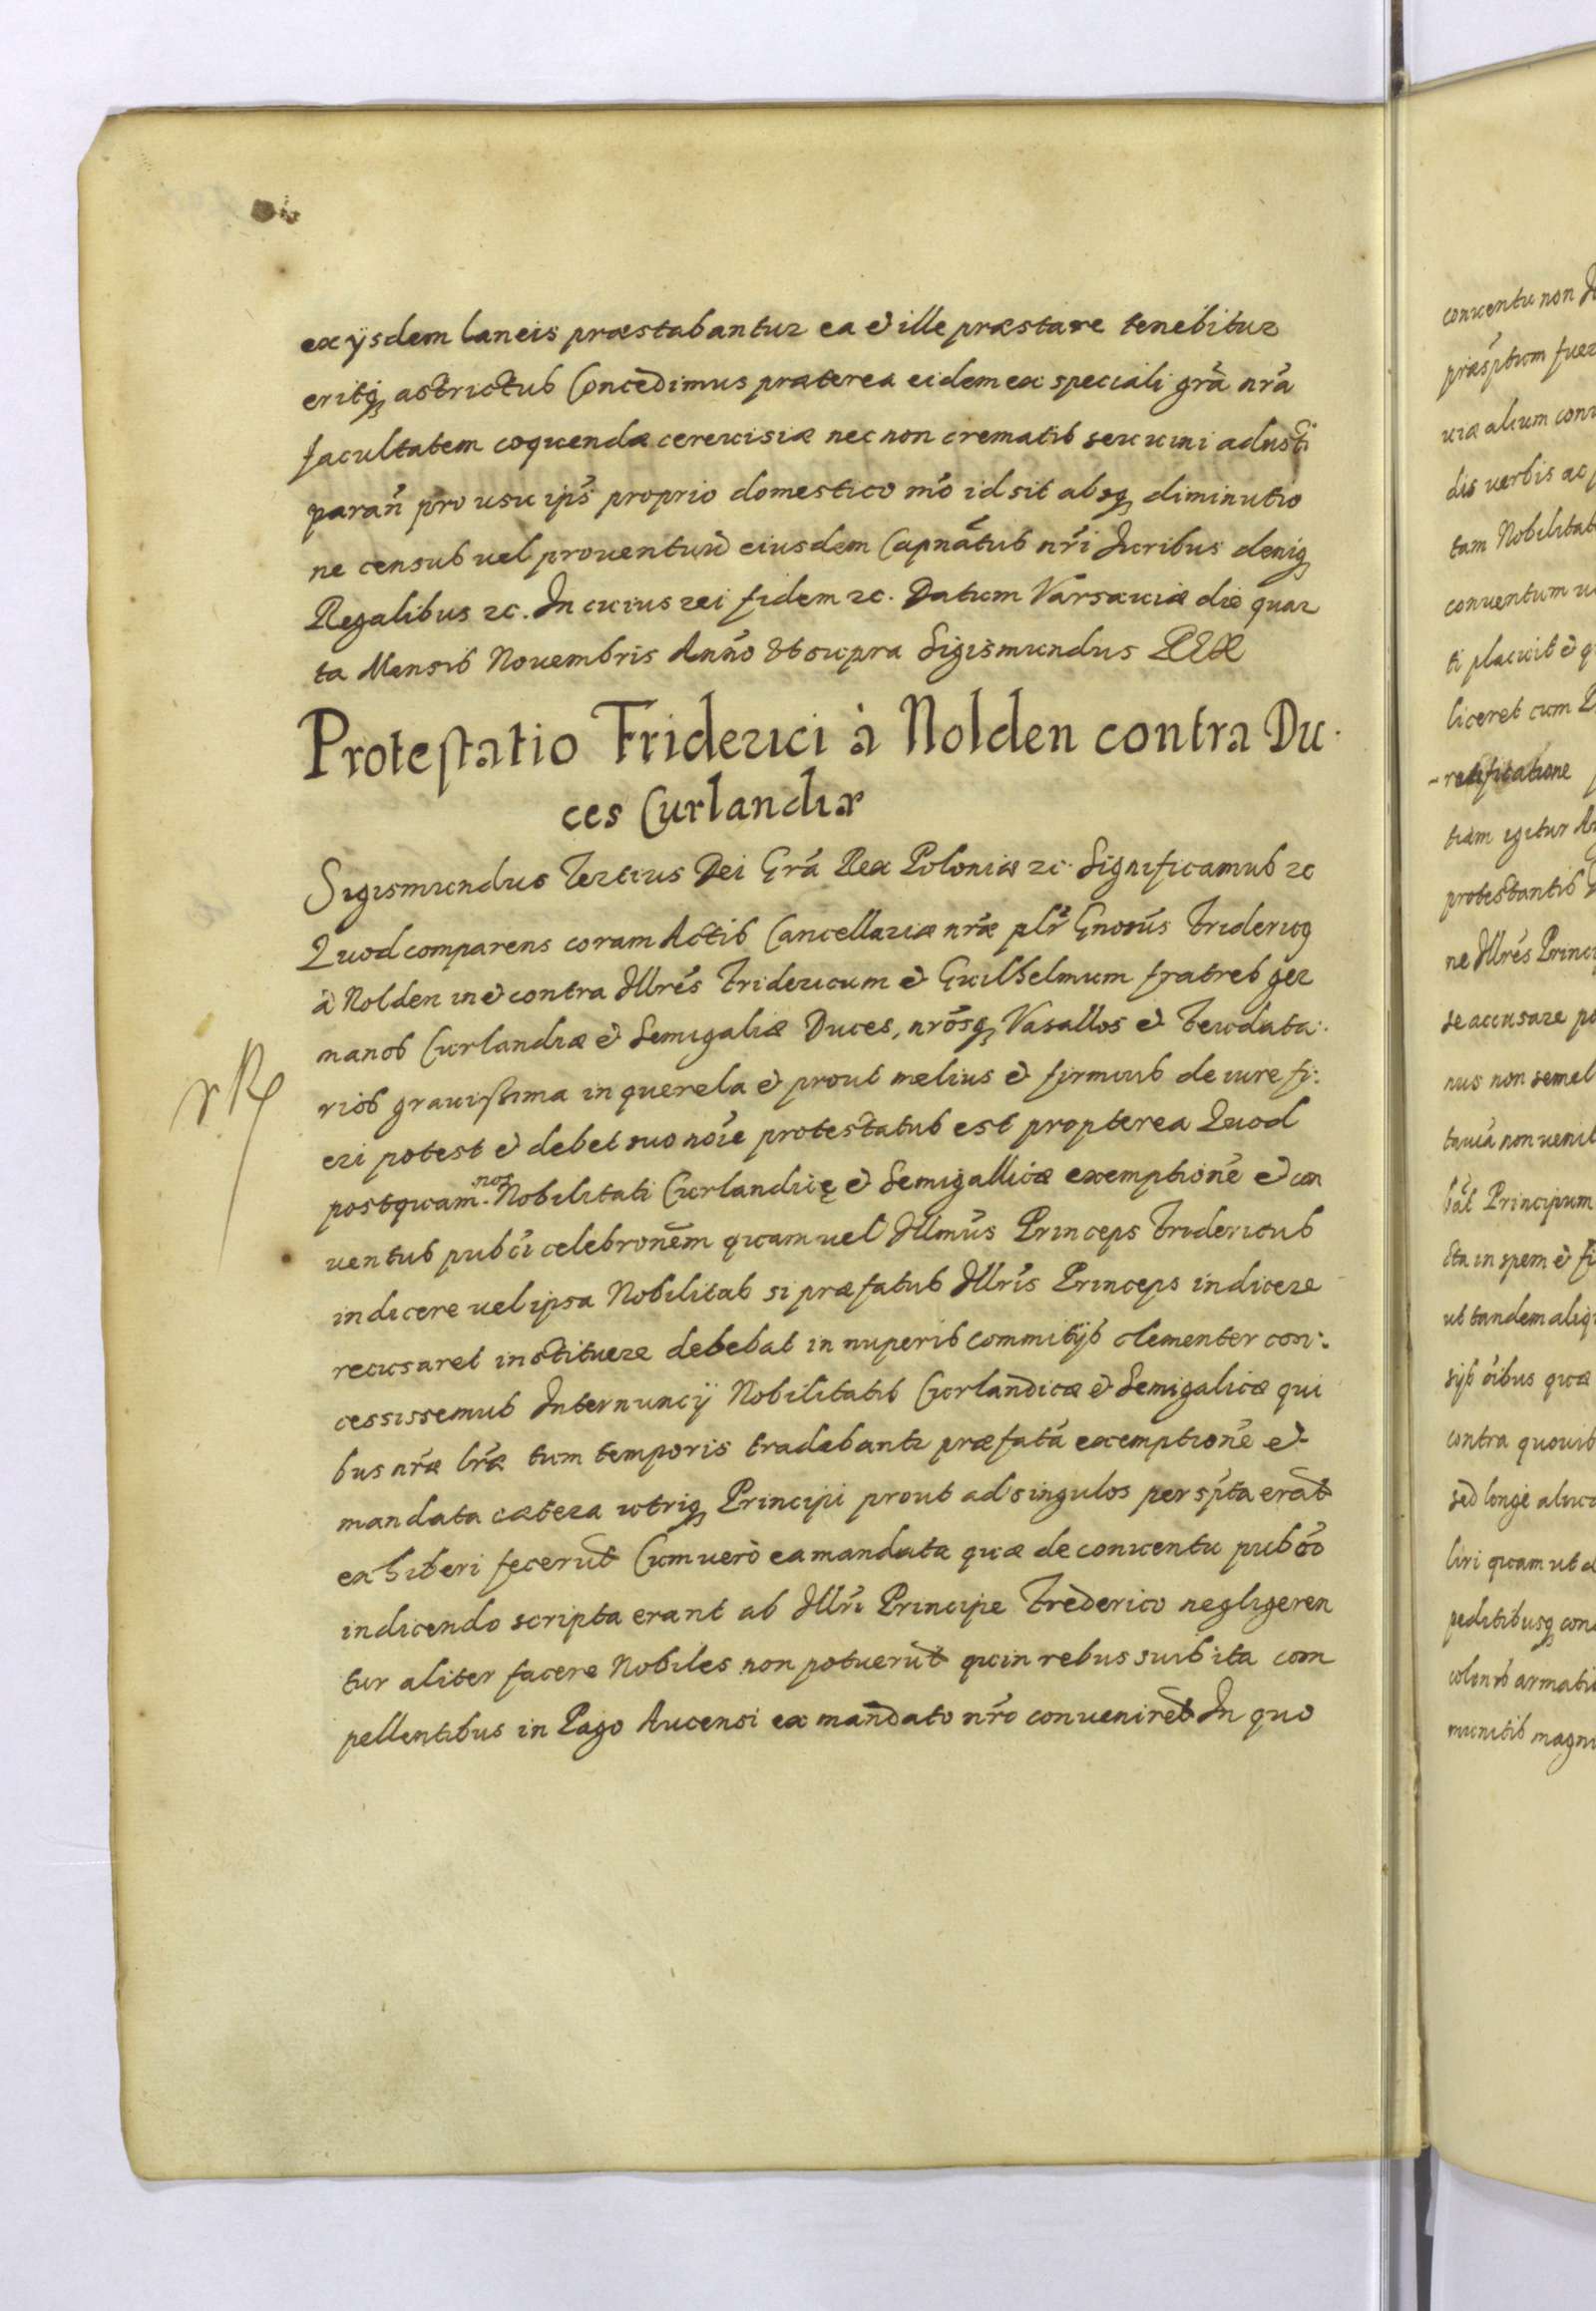 ex ijsdem laneis præstabantur ea et ille præstare tenebitur
eritq astrictus Concedimus præterea eidem ex speciali grã nrã
facultatem coquendæ cereuisiæ nec non crematis seu uini adusti
paran̄ pro usu ips̄ proprio domestico mõ id sit absq diminutio
ne census uel prouentuũ eiusdem Capnãtus nr̃i Iuribus deniq
Regalibus etc. In cuius rei fidem etc. Datum Varsauiæ die quar
ta Mensis Nouembris Anño Vt supra Sigismundus Rex
Protestatio Friderici à Nolden contra Du
ces Curlandiæ
Sigismundus Tertius Dei Grã Rex Poloniæ etc. Significamus etc
Quod comparens coram Actis Cancellariæ nr̃æ plr̃ Gnosũs Fridericq
à Nolden in et contra Illrẽs Fridericum et Guilhelmum fratres ger
manos Curlandiæ et Semigaliæ Duces, nrõsq Vasallos et Feudata:
rios grauissima in querela et prout melius et firmius de iure fi:
eri potest et debet suo noĩe protestatus est propterea Quod
postquam nos Nobilitati Curlandicę et Semigallicæ exemptionẽ et con
uentus pub̃ci celebronẽm quam uel Illmũs Princeps Fridericus
indicere uel ipsa Nobilitas si præfatus Illrĩs Princeps indicere
recusaret instituere debebat in nuperis commitijs clementer con:
cessissemus Internuncij Nobilitatis Curlandicæ et Semigalicæ qui
bus nr̃æ lr̃æ tum temporis tradebantr præfatã exemptionẽ et
mandata cætera utriq Principi prout ad singulos persp̃ta erãt
exhiberi fecerũt Cum uerò ea mandata quæ de conuentu pub̃co
indicendo scripta erant ab Illrĩ Principe Frederico negligeren
tur aliter facere Nobiles non potuerũt quin rebus suis ita com
pellentibus in Pago Aucensi ex mandato nr̃o conuenirẽt In quo
conuentu non
præsp̃tum fuer
uiæ alium conu
dis uerbis ac
tam Nobilitat
conuentum
ti placuit et
liceret cum
ratificatione
tiam igitur
protestantis
ne Illrẽs Princi
se accusare
nus non semel
tauiã non uenit
bãt Principum
cta in spem et
ut tandem
sijs oĩbus quæ
contra quouis
sed longè
liri quam ut
peditibusq con
colonis
munitis magn